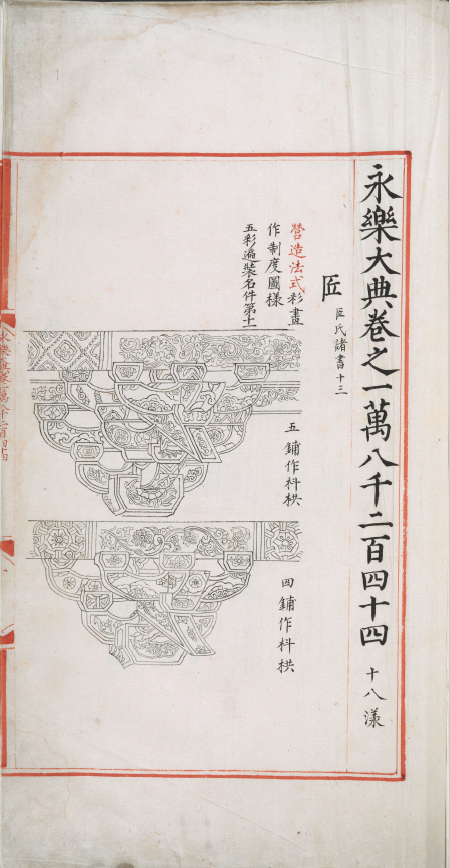 永樂大典卷之一萬八千二百四十四 十八漾
匠 匠氏諸書十三
營造法式彩畫
作制度圖樣
五彩遍裝名件第十一
五鋪作枓栱
四鋪作枓栱